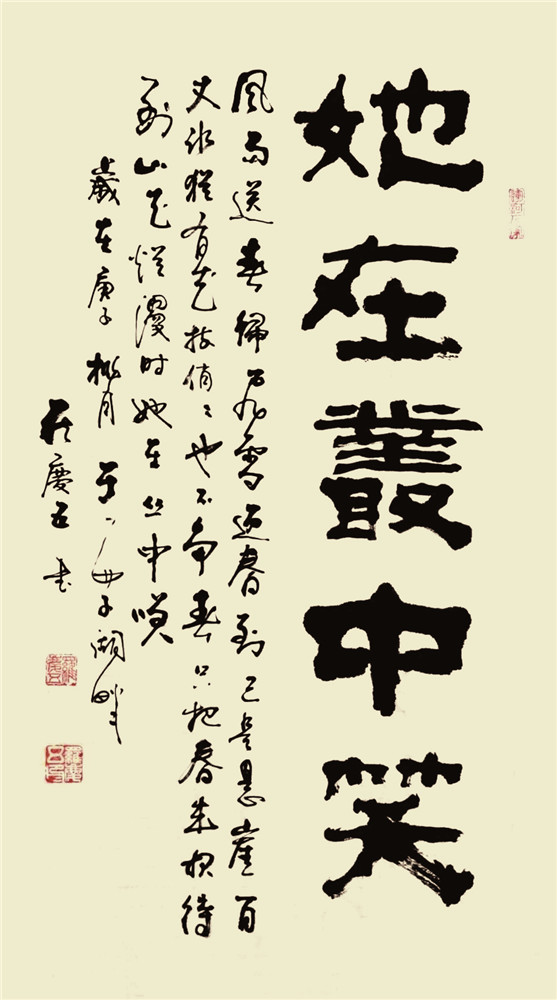 她在叢中笑
風雨送春歸飛雪迎春到已是懸崖百
丈冰猶有花枝俏俏也不争春只把春来报待
到山花爛漫时她在丛中笑
歲在庚子桃月于西子湖畔
慶五书